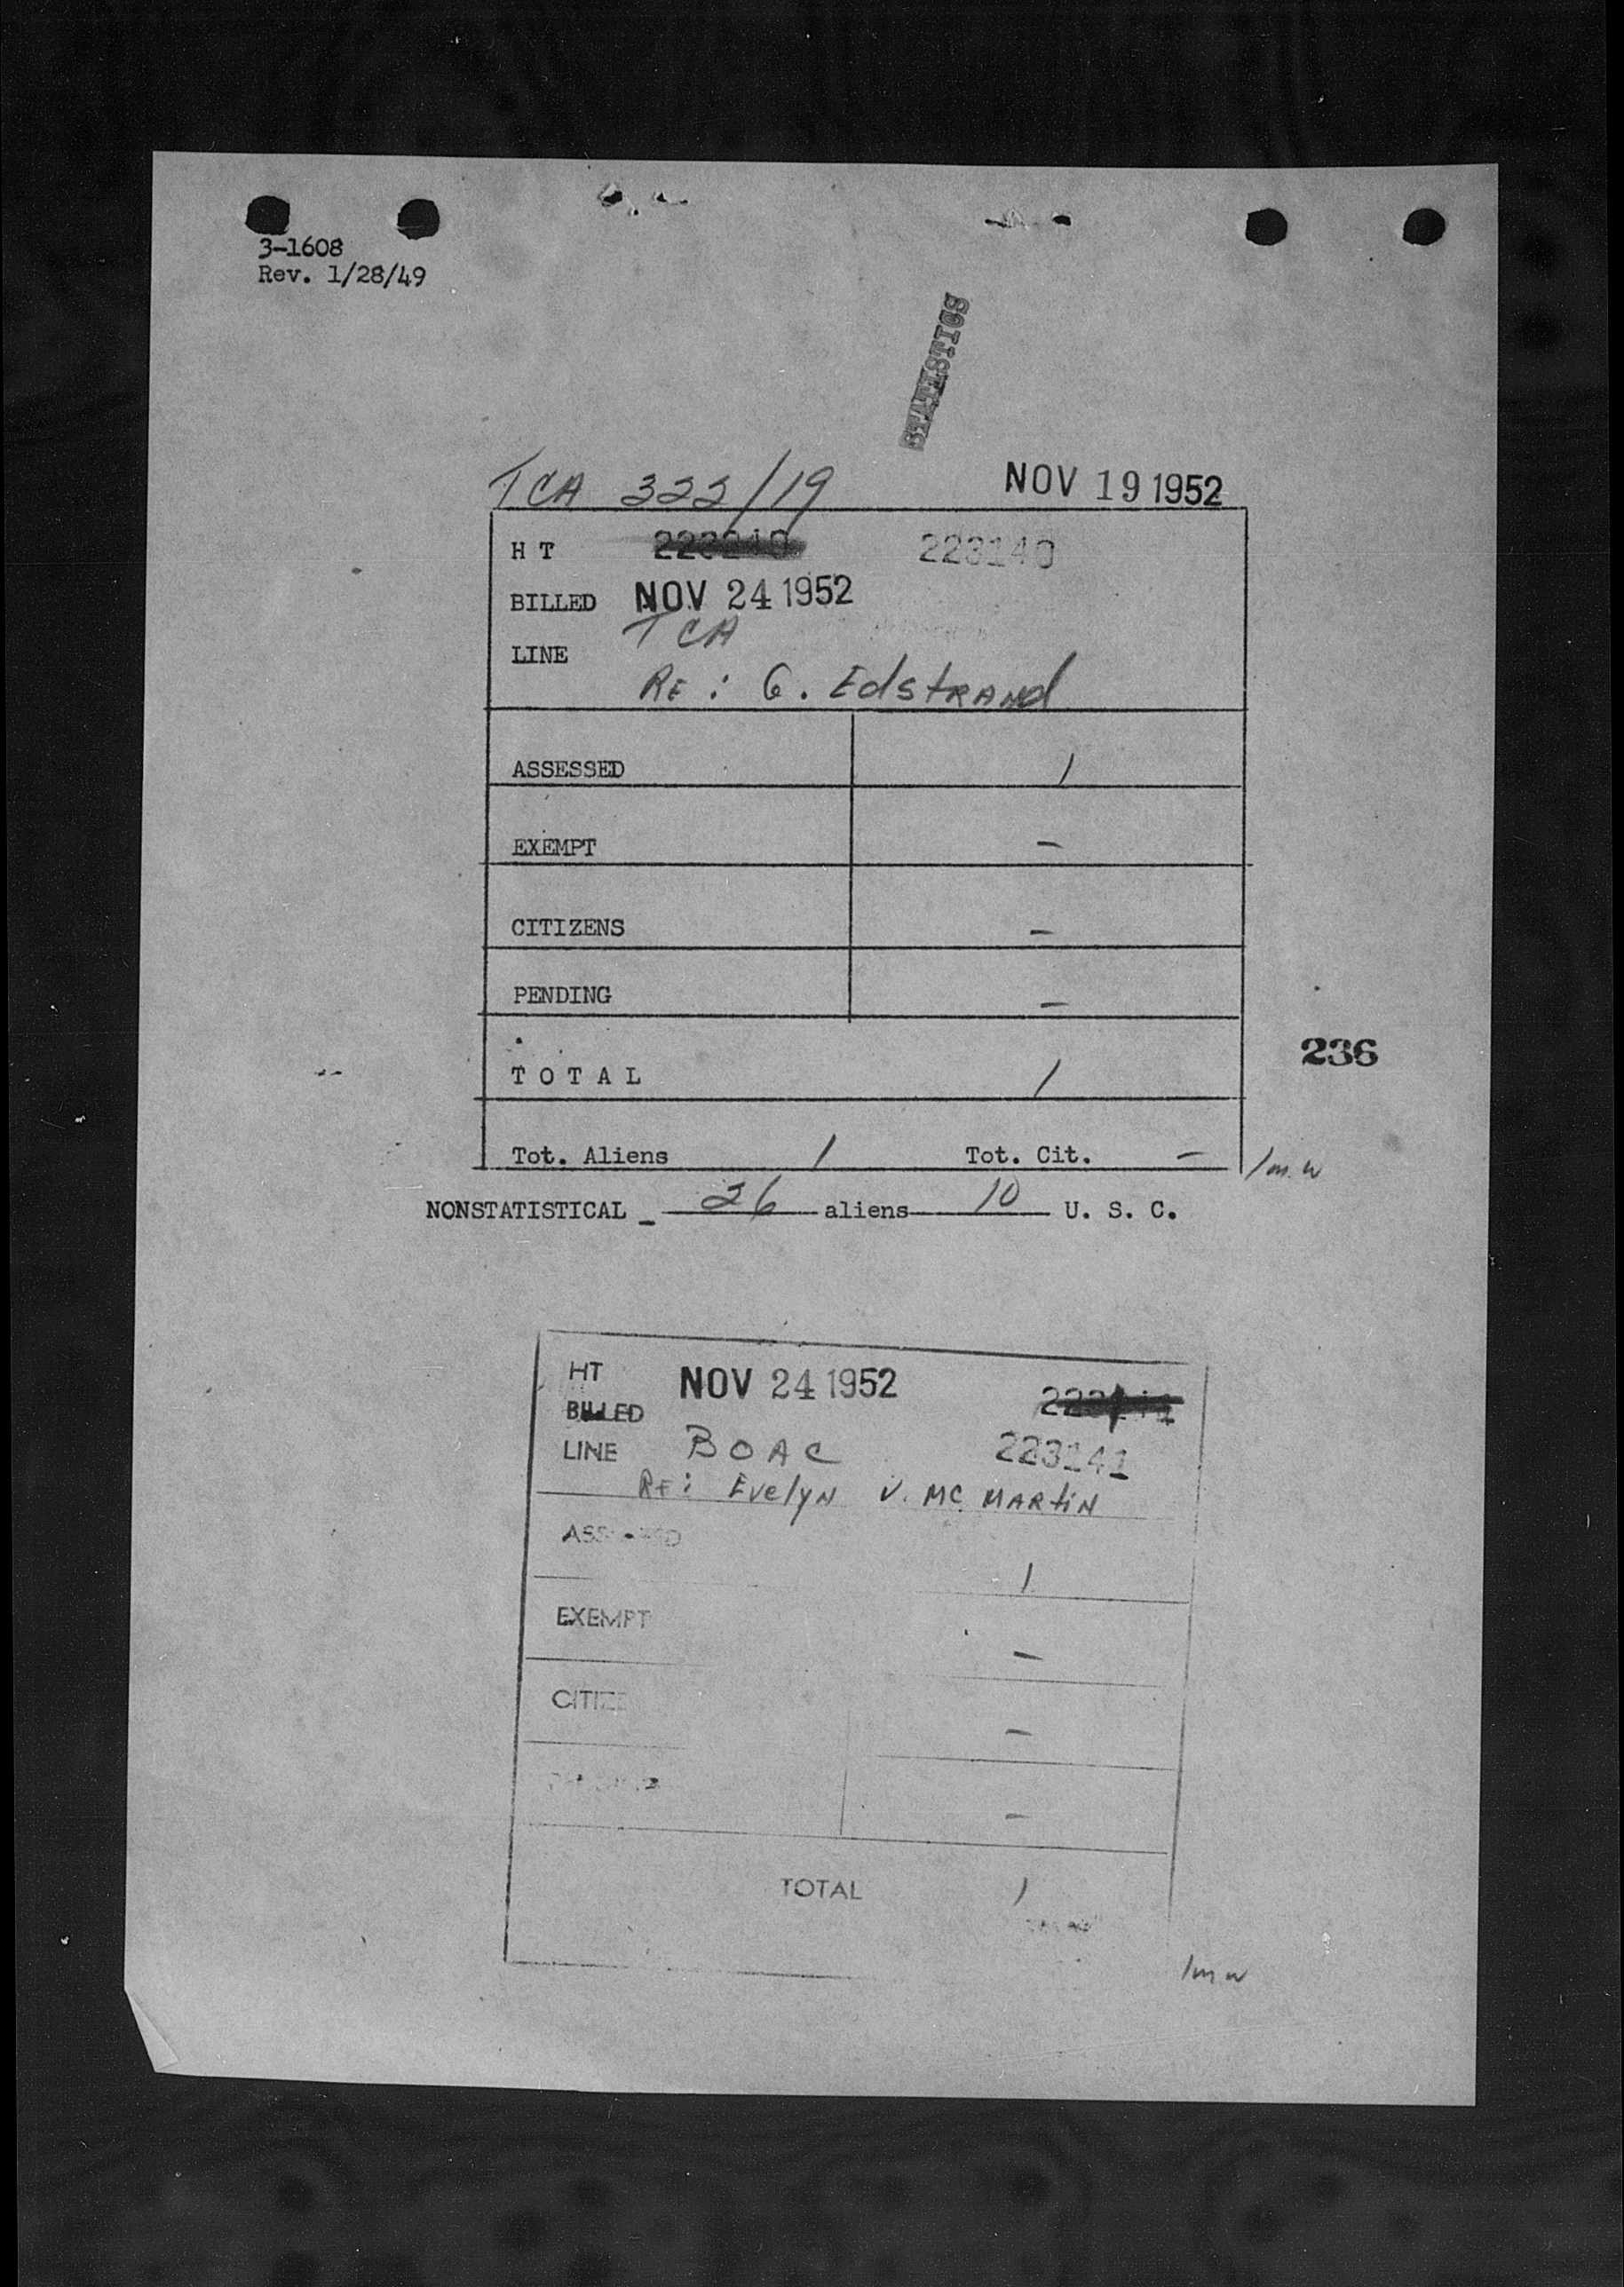 3-1608
Rev. 1/28/49
STATISTICS
TCA 322/19 NOV 19 1952
H T 223140 223140
BILLED NOV 24 1952
LINE TCA
RE: G. Edstrand
ASSESSED 1
EXEMPT –
CITIZENS –
PENDING –
236
T O T A L 1
Tot. Aliens 1 Tot. Cit. – /m.w
NONSTATISTICAL - 26 aliens 10 U. S. C.
HT NOV 24 1952 223141
BILLED
LINE BOAC 223141
RE: Evelyn V. Mc Martin
ASSESSED
1
EXEMPT
–
CITIZE
–
–
TOTAL 1
/mw